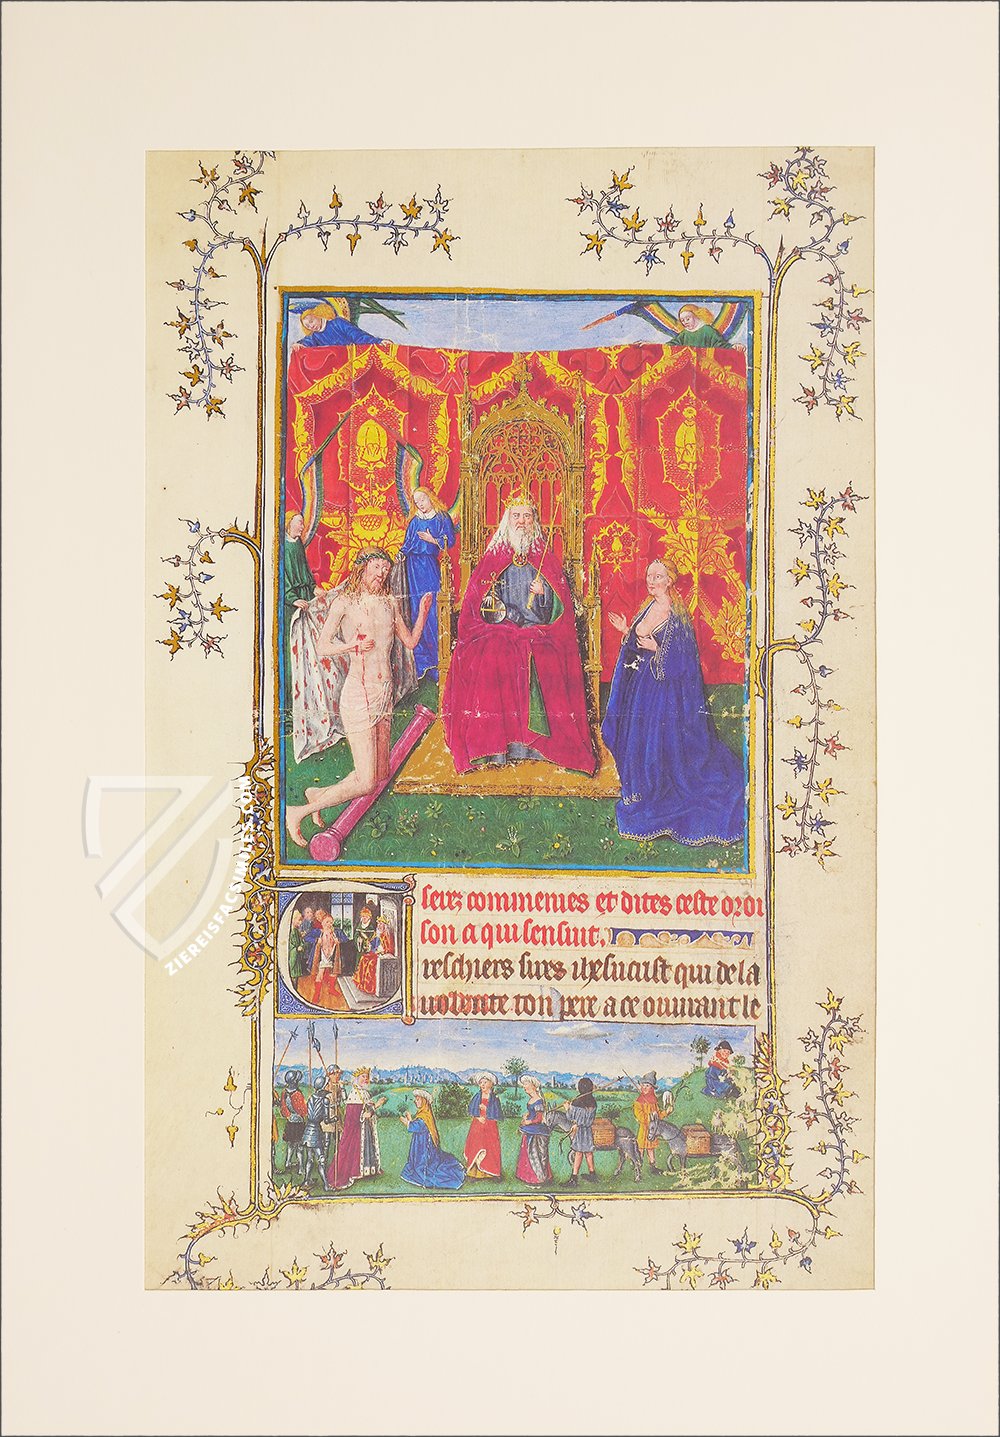 serez commenies et dites ceste oroi
son a qui sensuit.
reschiers sires ihesucrist qui de la
volente ton pere a ce ouurant le
ZIEREISFACSIMILES.COM